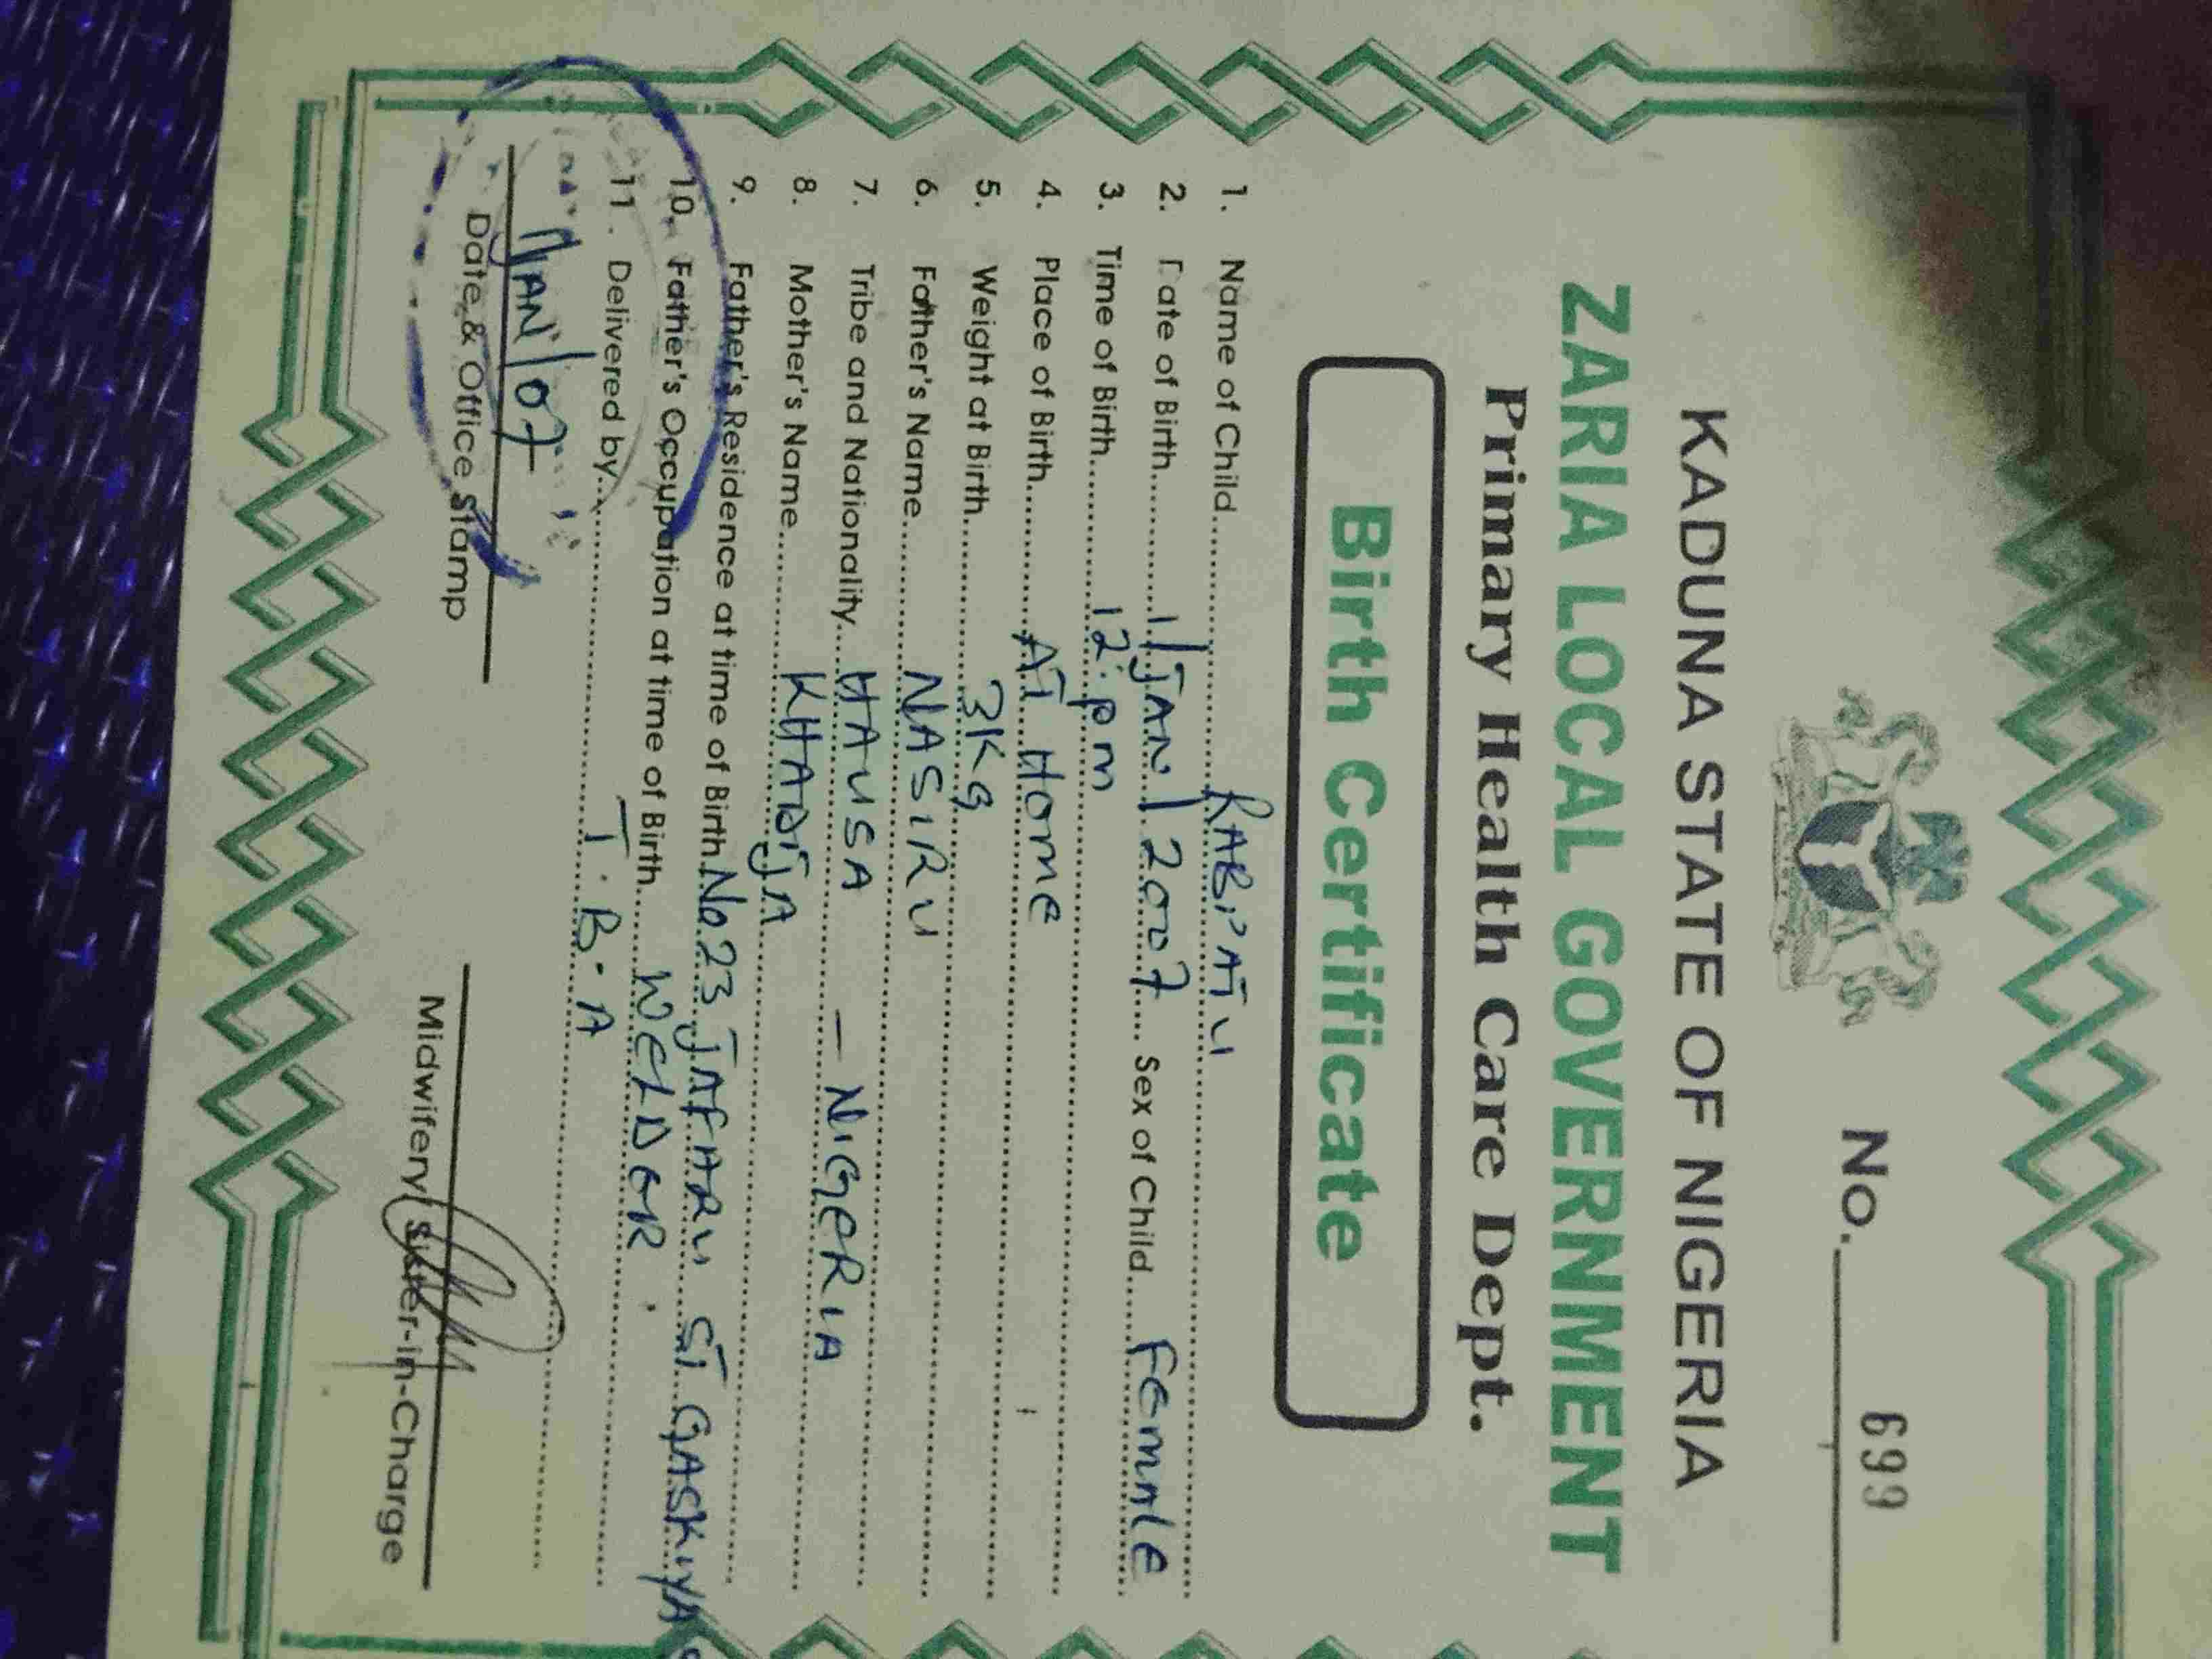 No. 699
KADUNA STATE OF NIGERIA
ZARIA LOCAL GOVERNMENT
Primary Health Care Dept.
Birth Certificate
1. Name of Child RABI'ATU
2. Date of Birth 1/JAN/2007 Sex of Child Female
3. Time of Birth 12:pm
4. Place of Birth AT Home
5. Weight at Birth 3Kg
6. Father's Name NASIRU
7. Tribe and Nationality HAUSA - NIGERIA
8. Mother's Name KHADIJA
9. Father's Residence at time of Birth No 23 JAFARU ST GASKIYA
10. Father's Occupation at time of Birth WELDER.
11. Delivered by T.B.A
1/JAN/07
Date & Office Stamp
Midwifery Sister-in-Charge